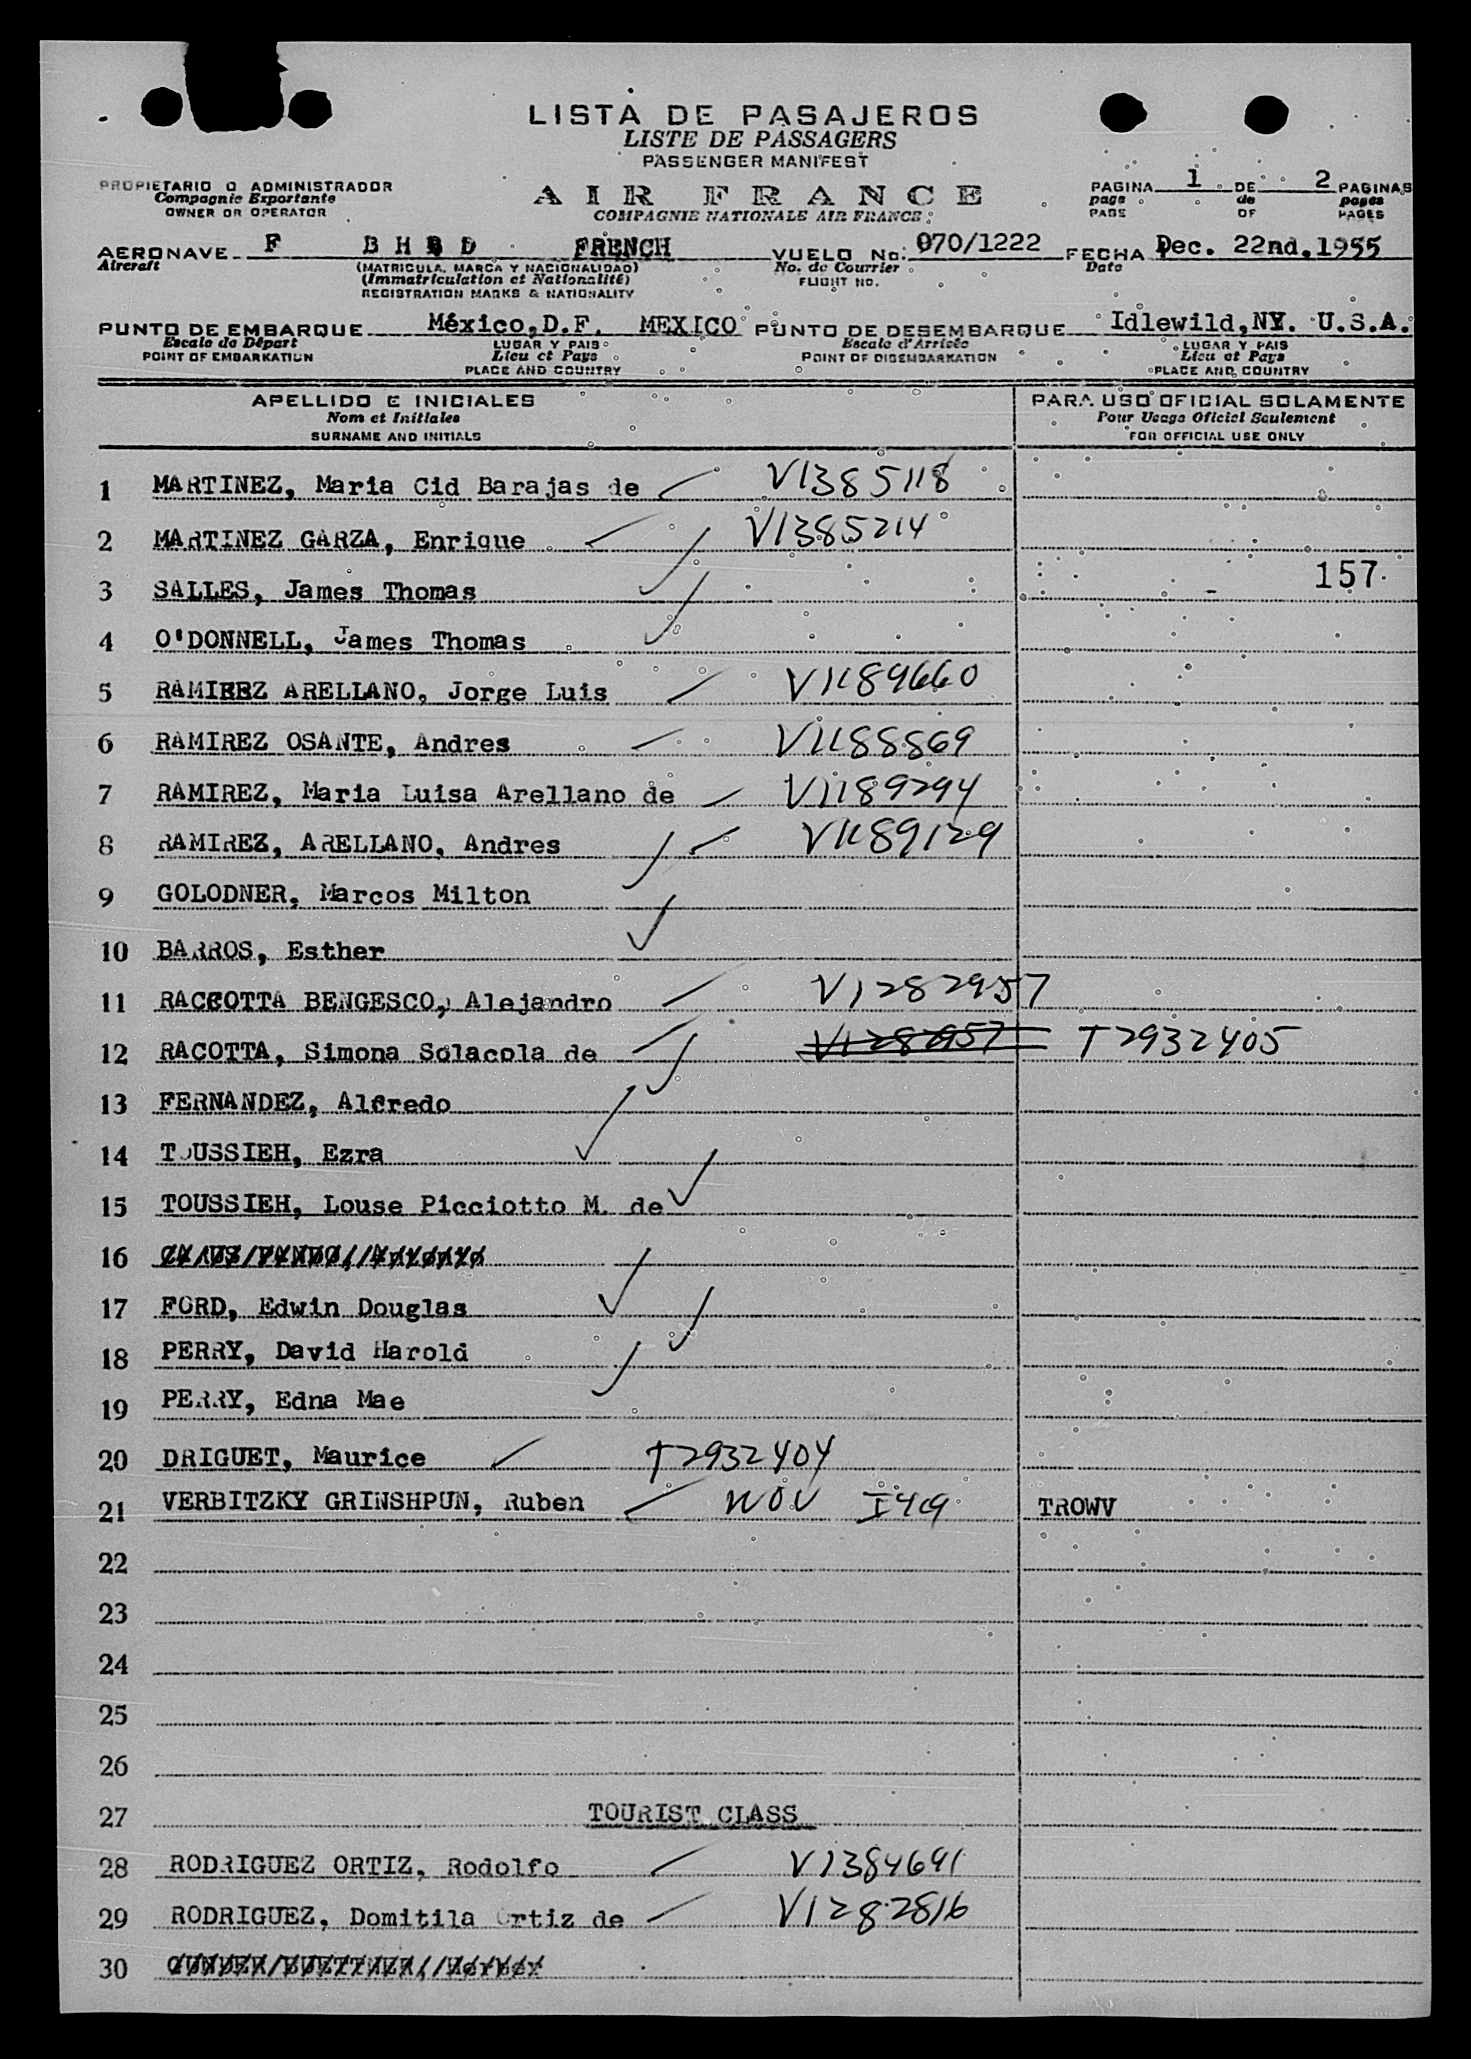 LISTA DE PASAJEROS
LISTE DE PASSAGERS
PASSENGER MANIFEST
PROPIETARIO O ADMINISTRADOR
Compagnie Exportante
OWNER OR OPERATOR
AIR FRANCE
COMPAGNIE NATIONALE AIR FRANCE
PAGINA 1 DE 2 PAGINAS
page de pages
PAGE OF PAGES
AERONAVE F B H B D FRENCH VUELO No. 070/1222 FECHA Dec. 22nd,1955
Aircraft (MATRICULA, MARCA Y NACIONALIDAD) No. de Courrier Date
(Immatriculation et Nationalité) FLIGHT NO.
REGISTRATION MARKS & NATIONALITY
PUNTO DE EMBARQUE México,D.F. MEXICO PUNTO DE DESEMBARQUE Idlewild,NY. U.S.A.
Escale de Départ LUGAR Y PAIS Escale d'Arrivée LUGAR Y PAIS
POINT OF EMBARKATION Lieu et Pays POINT OF DISEMBARKATION Lieu et Pays
PLACE AND COUNTRY PLACE AND COUNTRY
APELLIDO E INICIALES PARA USO OFICIAL SOLAMENTE
Nom et Initiales Pour Usage Oficiel Seulement
SURNAME AND INITIALS FOR OFFICIAL USE ONLY
1 MARTINEZ, Maria Cid Barajas de V1385118
2 MARTINEZ GARZA, Enrique V1385214
3 SALLES, James Thomas 157
4 O'DONNELL, James Thomas
5 RAMIREZ ARELLANO, Jorge Luis V1189660
6 RAMIREZ OSANTE, Andres V1188869
7 RAMIREZ, Maria Luisa Arellano de V1189294
8 RAMIREZ, ARELLANO, Andres V1189129
9 GOLODNER, Marcos Milton
10 BARROS, Esther
11 RACCOTTA BENGESCO, Alejandro V1282957
12 RACOTTA, Simona Solacola de V1282957 T2932405
13 FERNANDEZ, Alfredo
14 TOUSSIEH, Ezra
15 TOUSSIEH, Louse Picciotto M. de
16
17 FORD, Edwin Douglas
18 PERRY, David Harold
19 PERRY, Edna Mae
20 DRIGUET, Maurice T2932404
21 VERBITZKY GRINSHPUN, Ruben WOV I419 TROWV
22
23
24
25
26
27 TOURIST CLASS
28 RODRIGUEZ ORTIZ, Rodolfo V1384691
29 RODRIGUEZ, Domitila Ortiz de V1282816
30